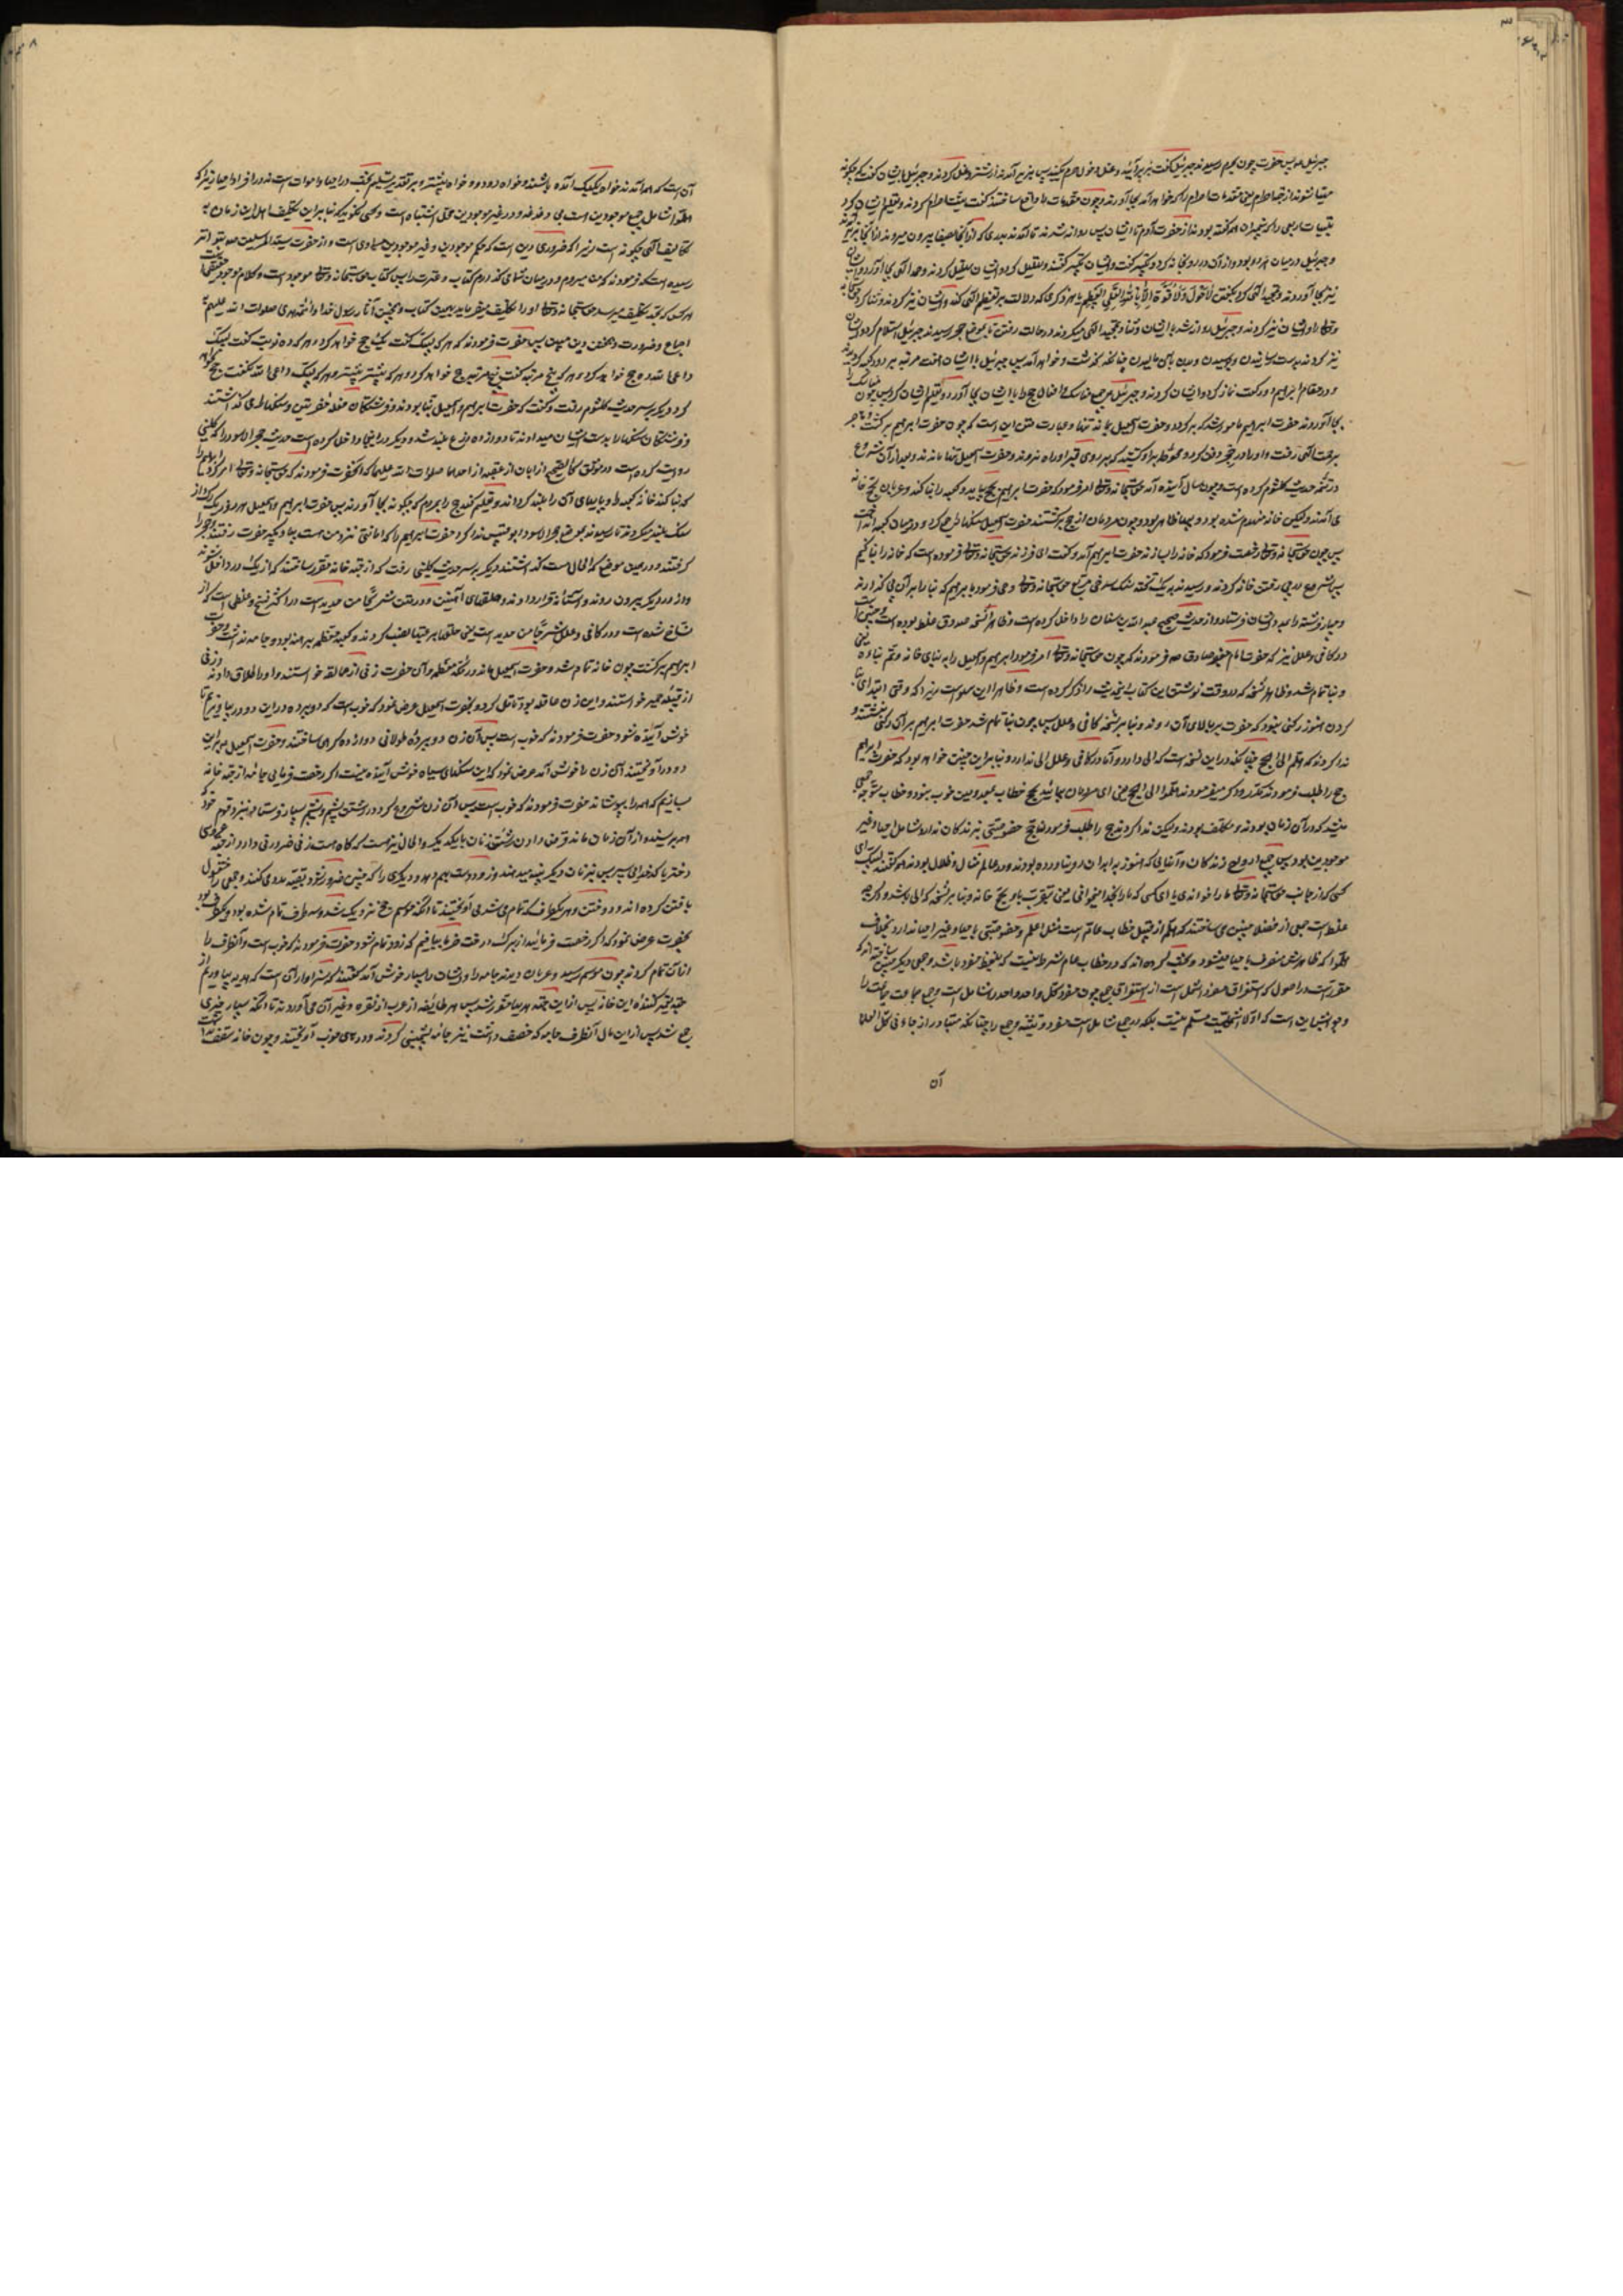 جبرئیل بود پس حضرت چون بحرم رسیدند جبرئیل گفت بزیر آئید و غسل دخول حرم بکنید پس بزیر آمدند از شتر و غسل کردند و جبرئیل بایشان گفت که چگونه
مهیا شوند از جهة احرام یعنی مقدمات احرام را که خواهد آمد بجا آوردند و چون مقدمات را واقع ساختند گفت نیت احرام کردند و تعلیم ایشان کرد
تلبیات اربعی را که پیغمبران همه گفته بودند از حضرت آدم تا ایشان پس روانه شدند تا آمدند بدری که از آنجا بصفا بیرون میروند از آنجا بزیر آمدند
و جبرئیل در میان هر دو بود و از آن در رو بخانه کرد و تکبیر گفت و ایشان تکبیر گفتند و تهلیل کرد و ایشان تهلیل کردند و حمد الهی بجا آورد و ایشان
نیز بجا آوردند و تمجید الهی کرد بگفتن لا حول ولا قوة الا بالله العلی العظیم یا هر ذکری که دلالت بر تعظیم الهی کند و ایشان نیز کردند و ثنا کرد حق سبحانه
و تعالی را و ایشان نیز کردند و جبرئیل روانه شد با ایشان و ثنا و تمجید الهی میکردند در حالت رفتن تا بموضع حجر رسیدند جبرئیل استلام کرد و ایشان
نیز کردند بدست رسانیدن و بوسیدن و بدن باین مالیدن چنانکه گذشت و خواهد آمد پس جبرئیل با ایشان هفت مرتبه بر دور کعبه گردیدند
و در مقام ابراهیم دو رکعت نماز کرد و ایشان کردند و جبرئیل جمیع مناسک و افعال حج را با ایشان بجا آورد و تعلیم ایشان کرد پس چون مناسک را
بجا آوردند حضرت ابراهیم مامور شد که برگردد و حضرت اسمعیل بماند تنها و عبارت متن این است که چون حضرت ابراهیم برگشت و هاجر
برحمت الهی رفت و او را در حجر دفن کرد و محوطه بر او کشید که بر روی قبر او راه نروند و حضرت اسمعیل تنها ماندند و بعد از آن شروع
در تتمه حدیث کلثوم کرده است و چون سال آینده آمد حق سبحانه و تعالی امر فرمود که حضرت ابراهیم بحج بیاید و کعبه را بنا کند و عربان بحج خانه
می آمدند و لیکن خانه منهدم شده بود و پیها ظاهر بود و چون مردمان از حج برگشتند حضرت اسمعیل سنگها را جمع کرد و در میان کعبه انداخت
پس چون حق سبحانه و تعالی رخصت فرمود که خانه را بسازند حضرت ابراهیم آمد و گفت ای فرزند حق سبحانه و تعالی فرموده است که خانه را بنا کنیم
پس شروع در پی رفتن خانه کردند و رسیدند به یک تخته سنگ سرخی پس حق سبحانه و تعالی وحی فرمود بابراهیم که بنا را بر آن بگذارند
و چهار فرشته را بمدد ایشان فرستاد و از حدیث صحیح عبدالله بن سنان را داخل کرده است و ظاهرا نسخه صدوق غلط بوده است
در کافی و علل نیز که حضرت امام جعفر صادق ص فرمودند که چون حق سبحانه و تعالی امر فرمود ابراهیم و اسمعیل را به بنای خانه و تم بناوه یعنی
و بنا تمام شد و ظاهرا نسخه که در وقت نوشتن این کتاب این حدیث را ذکر کرده است و ظاهرا این سهو است زیرا که وقتی ابتدای بنا
کردن هنوز رکنی نبود که حضرت بر بالای آن روند و بنا بر نسخه کافی و علل پس چون بنا تمام شد حضرت ابراهیم بر آن رکن نشستند و
ندا کردند که هلم الی الحج چنانکه در این نسخه است که الی دارد و اما در کافی و علل الی ندارد و بنابراین چنین خواهد بود که حضرت ابراهیم
حج را طلب فرمودند که در او اگر میفرمودند هلموا الی الحج یعنی ای مردمان بیائید بحج خطاب بمعدومین خوب نبود و خطاب متوجه جمعی
میشد که در آن زمان بودند و مکلف بودند و لیکن ندا کردند حج را طلب فرمودند حج خصوصیتی بزندگان ندارد شامل احیا و غیر
موجودین بود پس جمیع ارواح زندگان و آنهایی که هنوز به ابدان رو نیاورده بودند و در عالم مثال و ظلال بودند همه گفتند لبیک ای
کسی که از جانب حق سبحانه و تعالی ما را خوانده یا ای کسی که ما را بخدا میخوانی یعنی بتقرب باو بحج خانه و بنا بر نسخه که الی باشد و اگر چه
غلط است جمعی از فضلا چنین می ساختند که هلم از قبیل خطاب عام است مثل اعلم و خصوصیتی باحیا و غیر احیا ندارد بخلاف
هلموا که ظاهرش منصرف باحیا میشود و بحث کرده اند که در خطاب عام شرط نیست که بلفظ مفرد باشد و جمعی دیگر چنین ساخته اند که
مقرر است در اصول که استغراق مفرد اشمل است از استغراق جمع چون مفرد کل واحد واحد را شامل است و جمع جماعت جماعت را
و جوابش این است که اولا اشملیت مسلم نیست بلکه در جمع شامل است مفرد و تثنیه و جمع را چنانکه متبادر از جاءنی کل العلما
آن
۸
آن است که همه آمدند خواه یک یک آمده باشند و خواه دو دو و خواه بیشتر و بر تقدیر تسلیم بحث در احیا و اموات است نه در افراد احیا زیرا که
هلموا شامل جمیع موجودین است بی دغدغه و در غیر موجودین محل اشتباه است و کسی نگوید که بنابراین تکلیف اهل این زمان به
تکالیف الهی چگونه است زیرا که ضروری دین است که حکم موجودین و غیر موجودین مساوی است و از حضرت سید المرسلین ص بتواتر
رسیده است که فرمودند که من میروم و در میان شما می گذارم کتاب و عترت را پس کتاب حق سبحانه و تعالی موجود است و کلام موجود حقیقتا
هر کس که بحد تکلیف میرسد حق سبحانه و تعالی او را تکلیف میفرماید بهمین کتاب و همچنین آثار رسول خدا و ائمه هدی صلوات الله علیهم به
اجماع و ضرورت دین مبین پس حضرت فرمودند که هر که یک لبیک گفت یک حج خواهد کرد و هر که ده نوبت گفت لبیک
داعی الله ده حج خواهد کرد و هر که پنج مرتبه گفت پنج مرتبه حج خواهد کرد و هر که بیشتر بیشتر و هر که لبیک داعی الله نگفت حج نخواهد
کرد و دیگر بر سر حدیث کلثوم رفت و گفت که حضرت ابراهیم و اسمعیل تنها بودند و فرشتگان
و فرشتگان سنگها را بدست ایشان میدادند تا دوازده ذرع بلند شد و دیگر در اینجا داخل کرده است حدیث حجر الاسود را که کلینی
روایت کرده است در موثق کالصحیح از ابان از عقبه از احدهما صلوات الله علیهما که آنحضرت فرمودند که حق سبحانه و تعالی امر کرد ابراهیم را
که بنا کند خانه کعبه را و پایهای آن را بلند گرداند و تعلیم کند حج را بمردم که چگونه بجا آورند پس حضرت ابراهیم و اسمعیل هر روز یک
سنگ بلند میکردند تا رسیدند بموضع حجر الاسود ابوقبیس ندا کرد حضرت ابراهیم را که امانتی نزد من هست بیا و بگیر حضرت رفتند و حجر را
گرفتند و در همین موضع که الحال هست گذاشتند و دیگر بر سر حدیث کلینی رفت که از جهة خانه دو در ساختند که از یک در داخل شوند
و از در دیگر بیرون روند و آستانه قرار دادند و حلقهای آهنین و در متن من حدید است در اکثر نسخ و غلطی است که از
نساخ شده است و در کافی و علل من حدید است یعنی حلقه بر درها نصب کردند و کعبه معظمه برهنه بود و جامه نداشت و حضرت
ابراهیم برگشت چون خانه تمام شد و حضرت اسمعیل ماند در مکه معظمه و آن حضرت زنی از عمالقه خواستند و او را طلاق دادند و زنی
از قبیله حمیر خواستند و این زن عاقله بود تامل کرد و بحضرت اسمعیل عرض نمود که خوب است که دو پرده در این دو در بیاویزیم تا
خوش آینده شود حضرت فرمودند که خوب است پس آن زن دو پرده طولانی دوازده گزی ساختند و حضرت اسمعیل بر این
دو در آویختند آن زن را خوش آمد عرض نمود که این سنگهای سیاه خوش آینده نیست اگر رخصت فرمایی جامه از جهة خانه
بسازیم که همه را بپوشاند حضرت فرمودند که خوب است پس آن زن شروع کرد در رشتن پشم و پشم بسیار فرستاد نزد قوم خود که
همه بریسند و از آن زمان ماند قرض دادن رشتن زنان با یکدیگر و الحال نیز هست که گاه هست زنی ضروری دارد از جهة عروسی
دختر یا کدخدایی پسر پس بزنان دیگر پنبه میدهند و زود دست بهم میدهد و دیگری را که چنین ضرور شود بقیه مدد می کنند و جمعی را مشغول
بافتن کرده اند و دوختن و هر یک طرف که تمام می شد می آویختند تا آنکه موسم حج نزدیک شد و سه طرف تمام شده بود و یکطرف بود
بحضرت عرض نمود که اگر رخصت فرمائید از برگ درخت خرما ببافیم که زود تمام شود حضرت فرمودند که خوب است و آنطرف را
از آن تمام کردند چون موسم رسید و عربان دیدند جامه را و ایشان را بسیار خوش آمد گفتند که سزاوار آن است که هدیه بیاوریم از
جهة تعمیر کننده این خانه پس از این جهة هدیها مقرر شد پس هر طایفه از عرب از نقره و غیر آن می آوردند تا آنکه بسیار چیزی
جمع شد پس از این مال آنطرف جامه که خصف داشت نیز جامه پشمینی کردند و در های خوب آویختند و چون خانه سقف نداشت